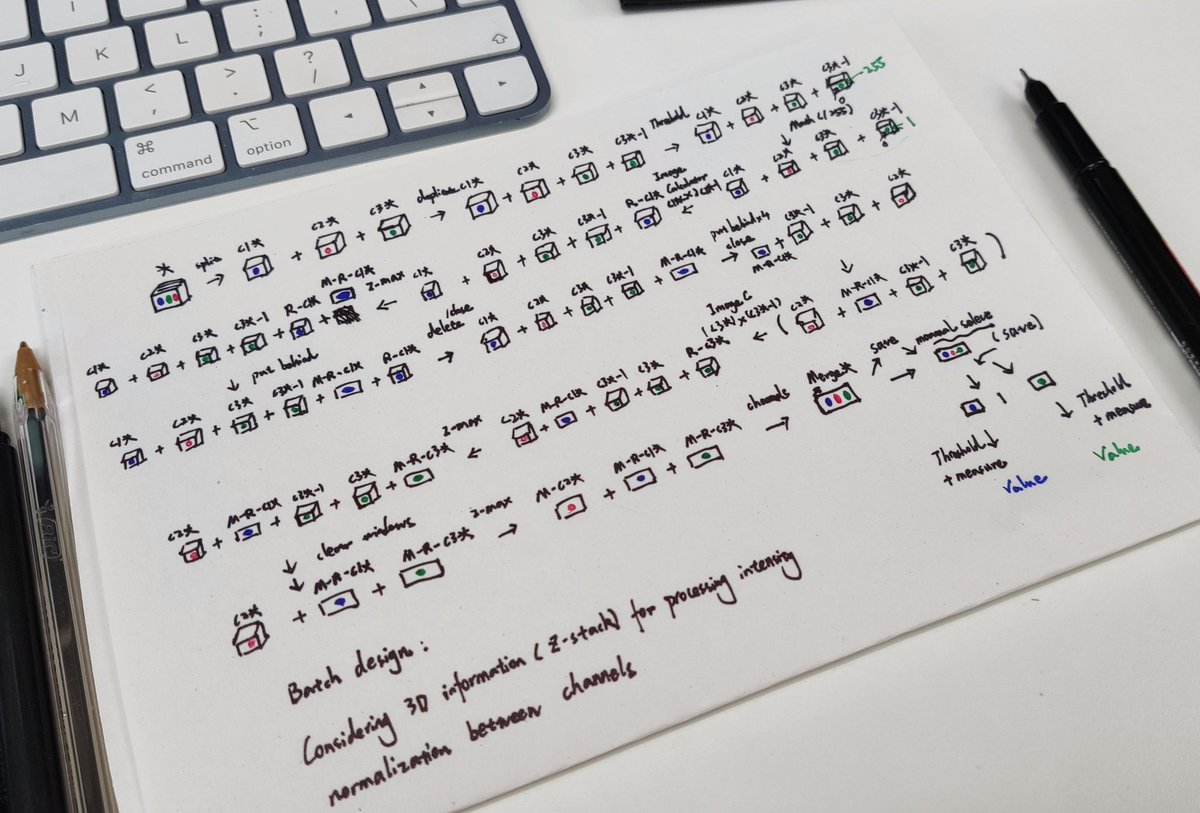 J K L : ;
M < , > . ? /
⌘ command ⌥ option
* split → C1* + C2* + C3* duplicate C1* → C1* + C2* + C3* + C3*-1 Threshold → C1* + C2* + C3* + C3*-1 255 0
C1* + C2* + C3* + C3*-1 + R-C1* + M-R-C1* Z-max ← C1* + C2* + C3* + C3*-1 + R-C1* Image Calculator ← C1* + C2* + C3* + C3*-1 1 0
C1* + C2* + C3* + C3*-1 + M-R-C1* + R-C1* delete /close → C1* + C2* + C3* + C3*-1 + M-R-C1* put behind x4 close → M-R-C1* + C3*-1 + C3* + C2*
↓ put behind
C2* + M-R-C1* + C3*-1 + C3* + M-R-C3* Z-max ← C2* + M-R-C1* + C3*-1 + C3* + R-C3* Image C (C3*) x (C3*-1) ← ( C2* + M-R-C1* + C3*-1 + C3* )
↓ clear windows
C2* + M-R-C1* + M-R-C3* z-max → M-C2* + M-R-C1* + M-R-C3* channels → Merge* save → manual (save)
Threshold ↓ + measure Value
↓ Threshold + measure Value
Batch design:
Considering 3D information (Z-stack) for processing intensity
normalization between channels